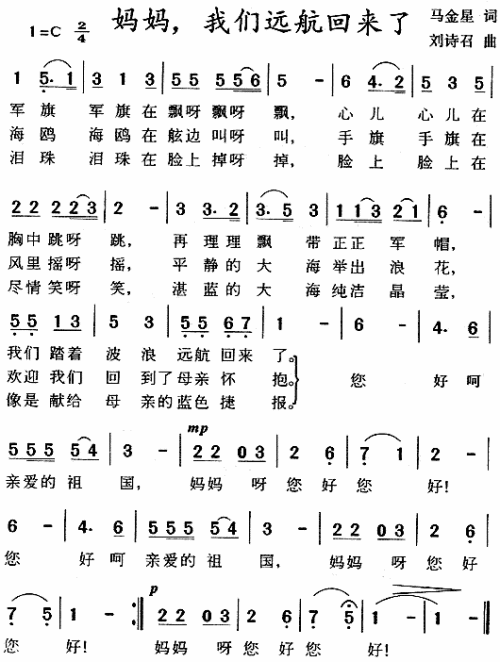 妈妈，我们远航回来了
马金星 词
刘诗召 曲
1=C 2/4
1 5· 1 | 3 1 3 | 55 5 5 | 55 56 | 5 - | 6 4· 2 | 5 3 5 |
军旗 军旗在飘呀飘呀飘， 心儿 心儿在
海鸥 海鸥在舷边叫呀叫， 手旗 手旗在
泪珠 泪珠在脸上掉呀掉， 脸上 脸上在
22 223 | 2 - | 3 3· 2 | 3· 5 | 11 3 21 | 6 - |
胸中跳呀跳， 再理理飘 带正正军帽，
风里摇呀摇， 平静的大 海举出浪花，
尽情笑呀笑， 湛蓝的大 海纯洁晶莹，
55 13 | 5 3 | 55 67 | 1 - | 6 - | 4· 6 |
我们踏着 波浪远航回来了。
欢迎我们 回到了母亲怀抱。 您 好呵
像是献给 母亲的蓝色捷报。
mp
555 54 | 3 - | 22 03 | 2 6 | 7 1 | 2 - |
亲爱的祖 国， 妈妈 呀您好您 好！
6 - | 4· 6 | 555 54 | 3 - | 22 03 | 2 6 |
您 好呵亲爱的祖 国， 妈妈 呀您好
p
7 5 | 1 - :| 22 03 | 2 6 | 7 5 | 1 - | 1 - ||
您 好！ 妈妈 呀您好您 好！